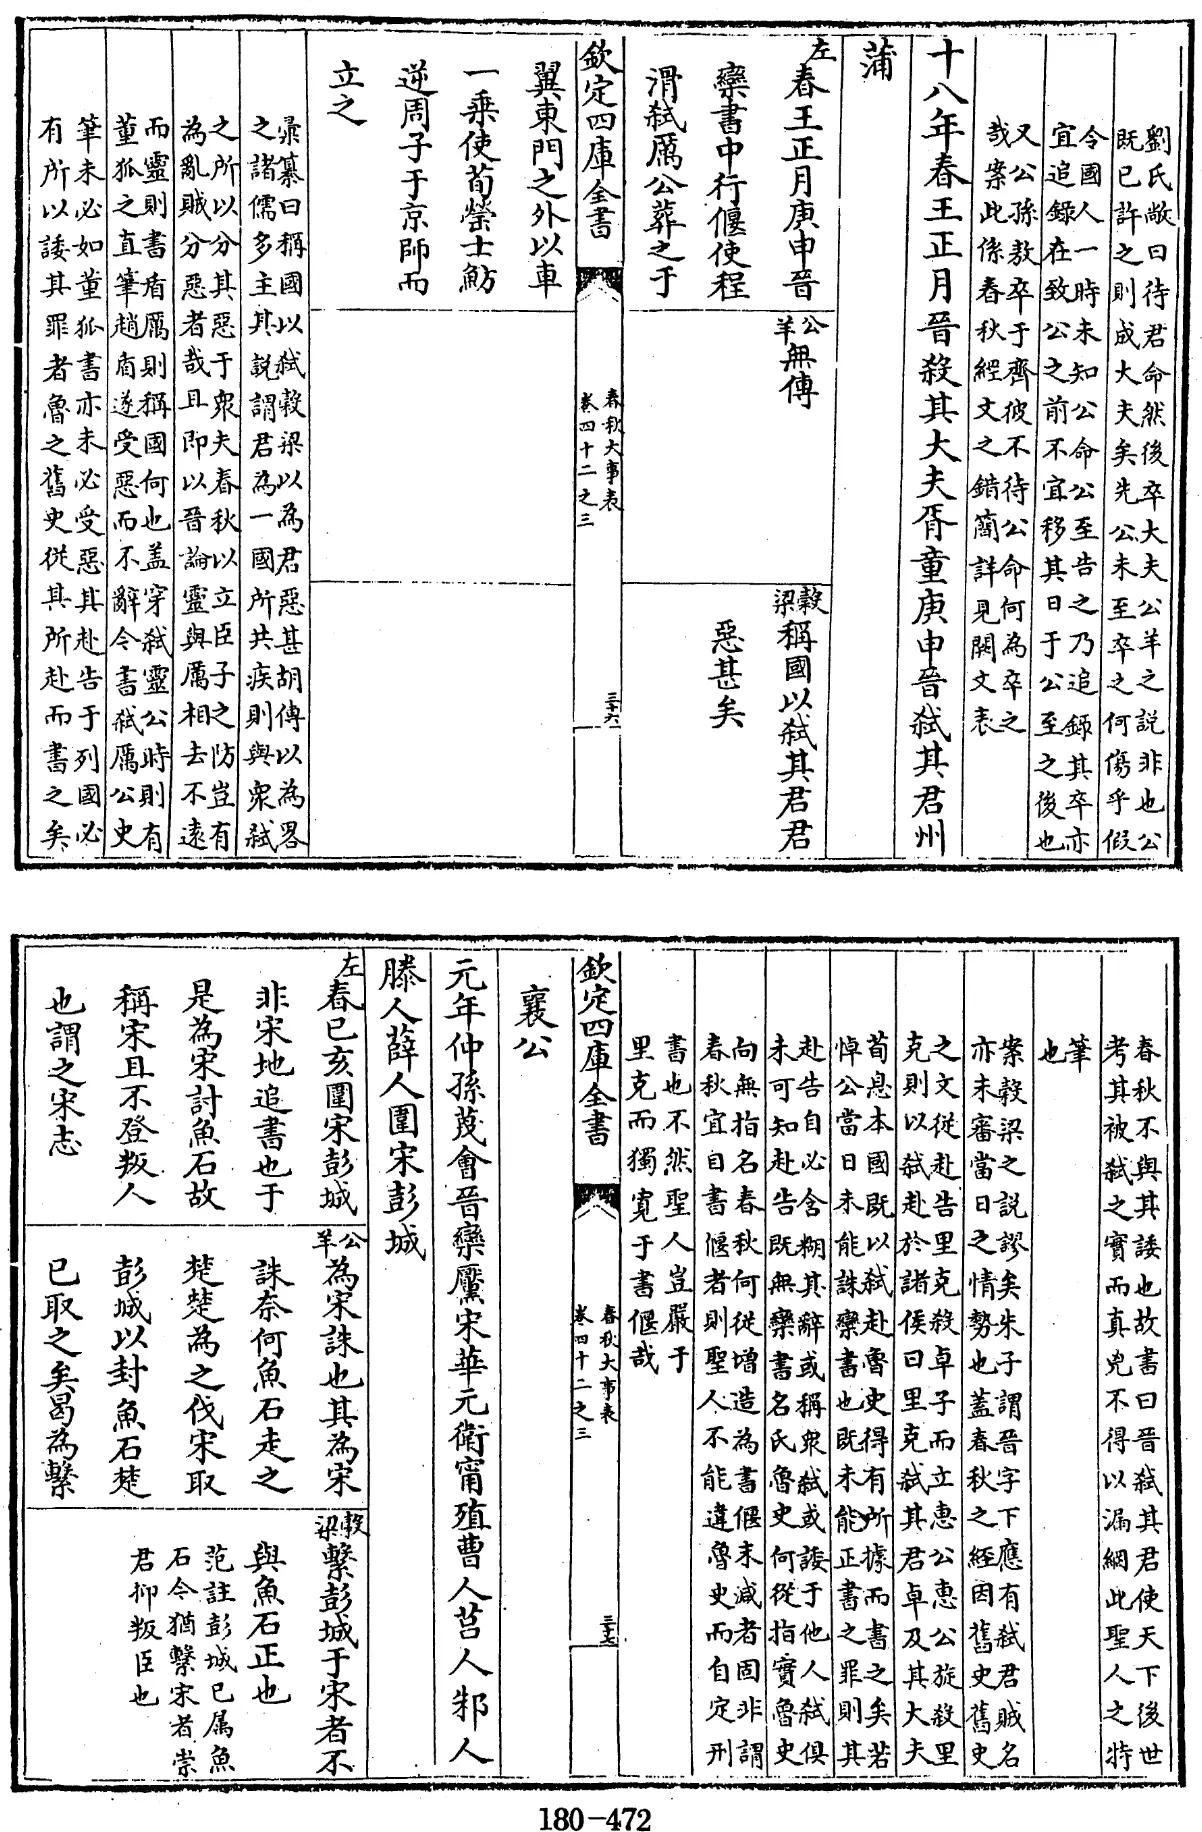 劉氏敞曰待君命然後卒大夫公羊之説非也公
既已許之則成大夫矣先公未至卒之何傷乎假
令國人一時未知公命公至告之乃追録其卒亦
宜追錄在致公之前不宜移其日于公至之後也
又公孫敖卒于齊彼不待公命何為卒之
哉案此條春秋經文之錯簡詳見闕文表
十八年春王正月晉殺其大夫胥童庚申晉弑其君州
蒲
左
春王正月庚申晉
欒書中行偃使程
滑弑厲公葬之于
翼東門之外以車
一乗使荀罃士魴
逆周子于京師而
立之
公羊
無傳
穀梁
稱國以弑其君君
惡甚矣
欽定四庫全書
春秋大事表
卷四十二之三
三十六
彙纂曰稱國以弑穀梁以為君惡甚胡傳以為畧
之諸儒多主其説謂君為一國所共疾則與衆弑
之所以分其惡于衆夫春秋以立臣子之防豈有
為亂賊分惡者哉且即以晉論靈與厲相去不遠
而靈則書盾厲則稱國何也盖穿弑靈公時則有
董狐之直筆趙盾遂受惡而不辭今書弑厲公史
筆未必如董狐書亦未必受惡其赴告于列國必
有所以諉其罪者魯之舊史從其所赴而書之矣
春秋不與其諉也故書曰晉弑其君使天下後世
考其被弑之實而真兇不得以漏網此聖人之特
筆
也
案穀梁之説謬矣朱子謂晉字下應有弑君賊名
亦未審當日之情勢也蓋春秋之經因舊史舊史
之文從赴告里克殺卓子而立惠公惠公旋殺里
克則以弑赴於諸侯曰里克弑其君卓及其大夫
荀息本國既以弑赴魯史得有所據而書之矣若
悼公當日未能誅欒書也既未能正書之罪則其
赴告自必含糊其辭或稱衆弑或諉于他人弑俱
未可知赴告既無欒書名氏魯史何從指實魯史
向無指名春秋何從增造為書偃末減者固非謂
春秋宜自書偃者則聖人不能違魯史而自定刑
書也不然聖人豈嚴于
里克而獨寛于書偃哉
欽定四庫全書
春秋大事表
卷四十二之三
三十七
襄公
元年仲孫蔑會晉欒黶宋華元衛甯殖曹人莒人邾人
滕人薛人圍宋彭城
左
春己亥圍宋彭城
非宋地追書也于
是為宋討魚石故
稱宋且不登叛人
也謂之宋志
公羊
為宋誅也其為宋
誅奈何魚石走之
楚楚為之伐宋取
彭城以封魚石楚
已取之矣曷為繫
穀梁
繫彭城于宋者不
與魚石正也
范註彭城已属魚
石今猶繫宋者崇
君抑叛臣也
180-472